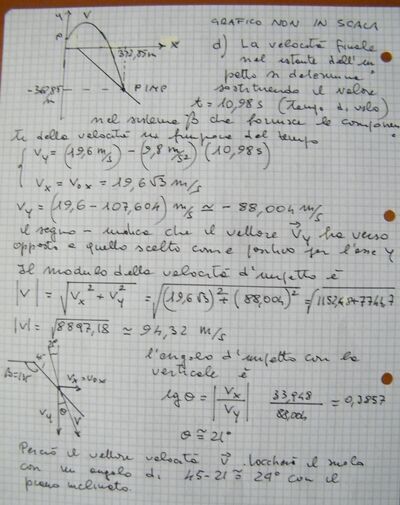 y V
GRAFICO NON IN SCALA
P
x
372,85m
-367,85 m
P IMP
d) La velocità finale
nel istante dell'im
patto si determina
sostituendo il valore
t = 10,98 s (tempo di volo)
nel sistema β che fornisce le componen
ti della velocità in funzione del tempo
Vy = (19,6 m/s) - (9,8 m/s2) (10,98 s)
Vx = V0x = 19,6√3 m/s
Vy = (19,6 - 107,604) m/s ≃ - 88,004 m/s
il segno - indica che il vettore Vy ha verso
opposto a quello scelto come positivo per l'asse y
Il modulo della velocità d'impatto è
|V| = √Vx² + Vy² = √(19,6√3)² + (88,004)² = √1152,48+7744,7
|V| = √8897,18 ≃ 94,32 m/s
l'angolo d'impatto con la
verticale è
β=135°
Vx=V0x
θ
Vy
V
tg θ = |Vx/Vy| 33,948/88,004 = 0,3857
θ ≅ 21°
Perciò il vettore velocità V toccherà il suolo
con un angolo di 45-21 ≅ 24° con il
piano inclinato.